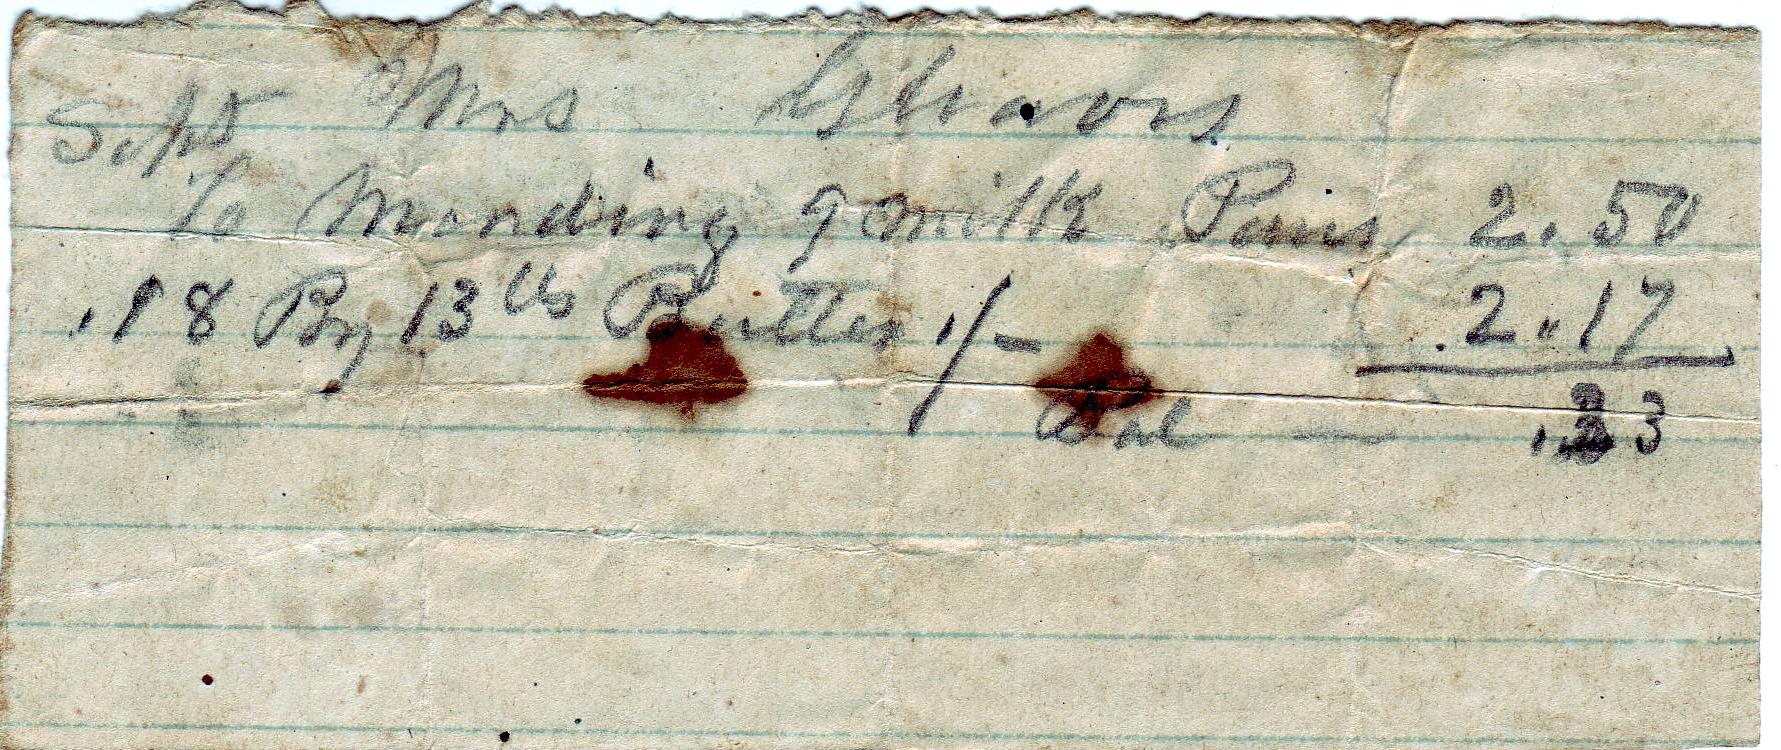 Sept Mrs
To Mending 9 milk Pans 2.50
" 18 By 13 lbs Butter 1/- 2.17
Bal — .33